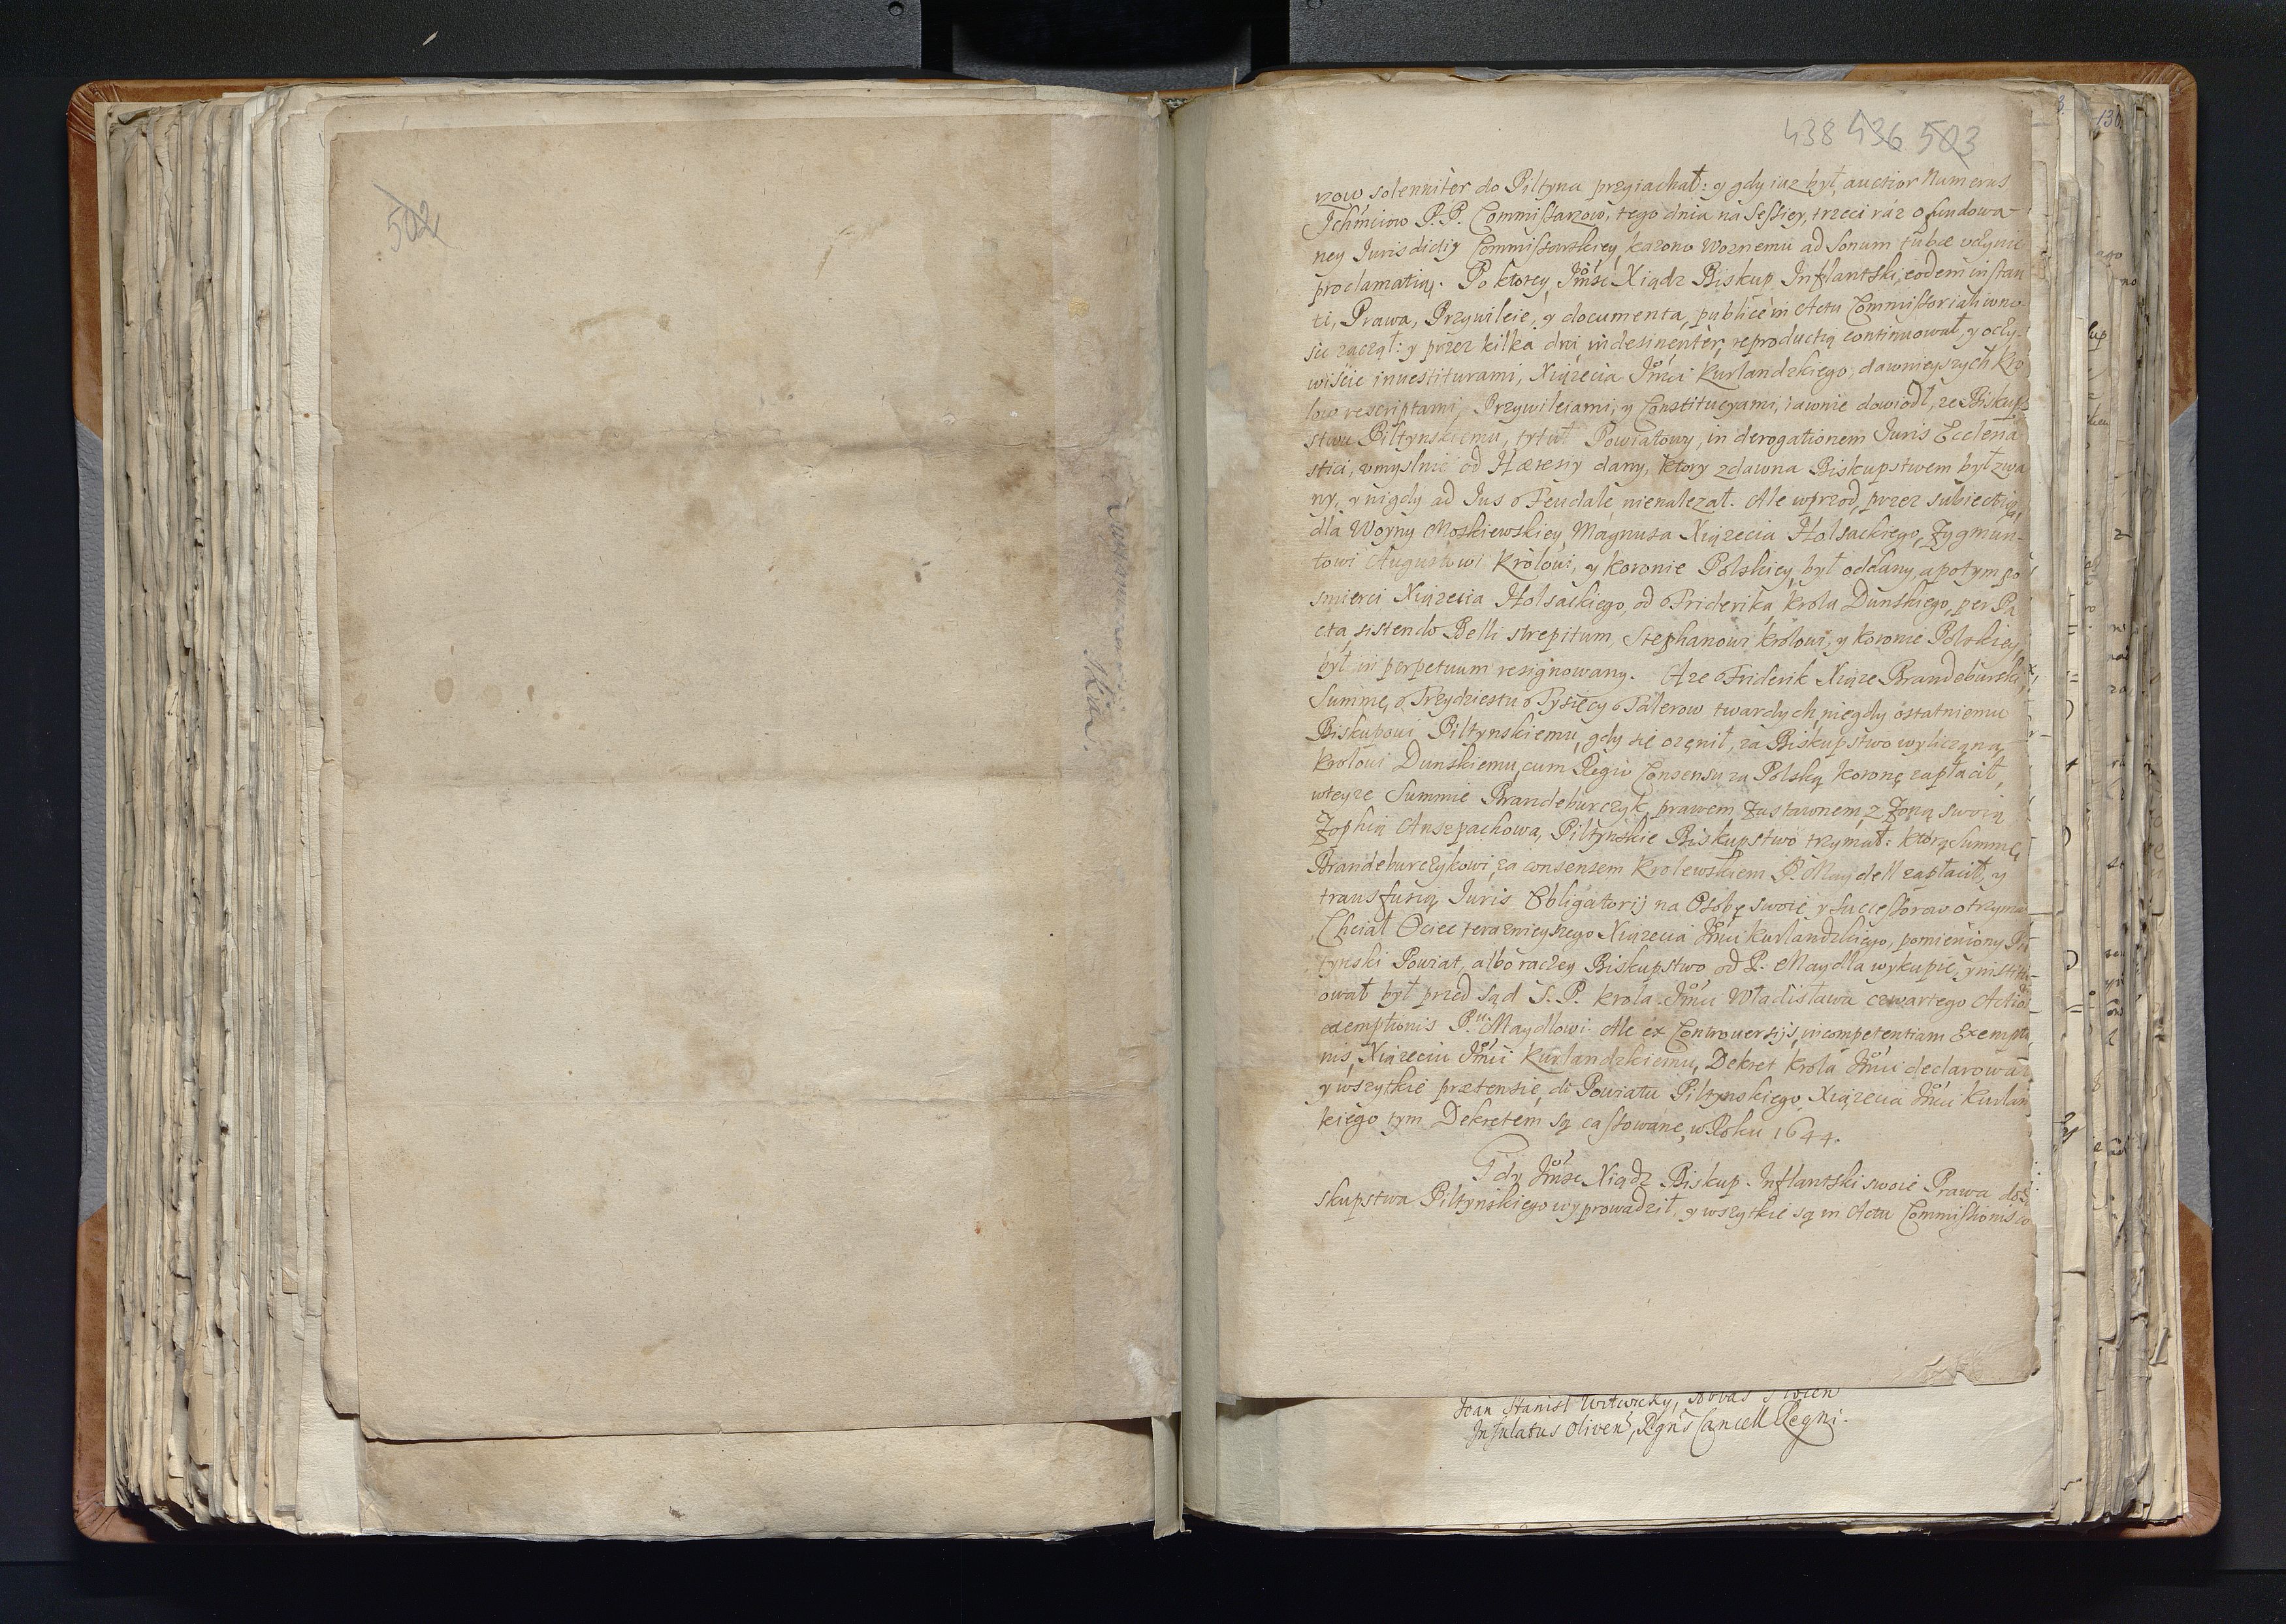 502
438 436 503
rzow solenniter do Piltyna przyiachał: y gdy iuz był auctior Numerus
Ichmciow P.P. Commissarzow, tego dnia na Sessiey, trzeci raz o fundowa-
ney Iurisdictiy Commissarskiey, kazono Woznemu ad Sonum tubæ uczynic
proclamatią. Po ktorey, Jmsc Xiądz Biskup Inflantski, eodem instan
ti, Prawa, Przywileie, y documenta, publice in Actu Commissoriali wno-
sic zaczął: y przez kilka dni, indesinenter, reproductią continuował, y oczy-
wiscie inuestiturami, Xiązecia Jmci Kurlandzkiego, dawnieyszych Kro
low rescriptami, Przywileiami, y Constitucyami, iawnie dowiodł, ze Biskup
stwu Piltynskiemu, tytuł Powiatowy, in derogationem Iuris Ecclesia
stici, umyslnie od Hæresiy dany, ktory zdawna Biskupstwem był zwa
ny, y nigdy ad Ius Feudale nienalezał. Ale wprzod, przez subiectią,
dla Woyny Moskiewskiey Magnusa Xiązecia Holsackiego, Zygmun-
towi Augustowi Krolowi, y Koronie Polskiey, był oddany, a potym po
smierci Xiązecia Holsackiego, od Friderika, Krola Dunskiego, per Pa
cta, sistendo Belli strepitum, Stephanowi, Krolowi, y Koronie Polskiey,
był in perpetuum resignowany. A ze Friderik Xiąze Brandeburski,
Summę, Trzydziestu Tysięcy Talerow twardych, niegdy ostatniemu
Biskupowi Piltynskiemu, gdy się ozęnił, za Biskupstwo wyliczoną,
Krolowi Dunskiemu, cum Regio Consensu za Polską Koronę zapłacił,
w teyze Summie Brandeburczyk, prawem Zastawnem, z Zoną swoią
Zophią Anszpachową, Piltynskie Biskupstwo trzymał: ktorą Summę,
Brandeburczykowi, za consensem Krolewskiem P. Maydell zapłacił, y
transfusią Iuris Obligatorij na Osobę swoię y Successorow otrzymał
Chciał Ociec teraznieyszego Xiązecia Jmci Kurlandzkiego, pomieniony Pil
tynski Powiat, albo raczey Biskupstwo od P. Maydla wykupic, y institu-
ował był przed sąd S. P. Krola Jmci Władisława czwartego Actio
exemptionis P.u Maydlowi. Ale ex Controuersijs, incompetentiam Exemptio
nis, Xiązeciu Jmci Kurlandzkiemu, Dekret Krola Jmci declarował
y wszytkie prætensie, do Powiatu Piltynskiego, Xiązecia Jmci Kurlan
kiego tym Dekretem są cassowane, w Roku 1644.
Gdy Jmsc Xiądz Biskup Inflantski swoie Prawa do Bi
skupstwa Piltynskiego wyprowadził, y wszytkie są in Actu Commissionis
Joan Stanisl Witwicky, Abbas
Insulatus Oliven, Rgns Cancell Regni.